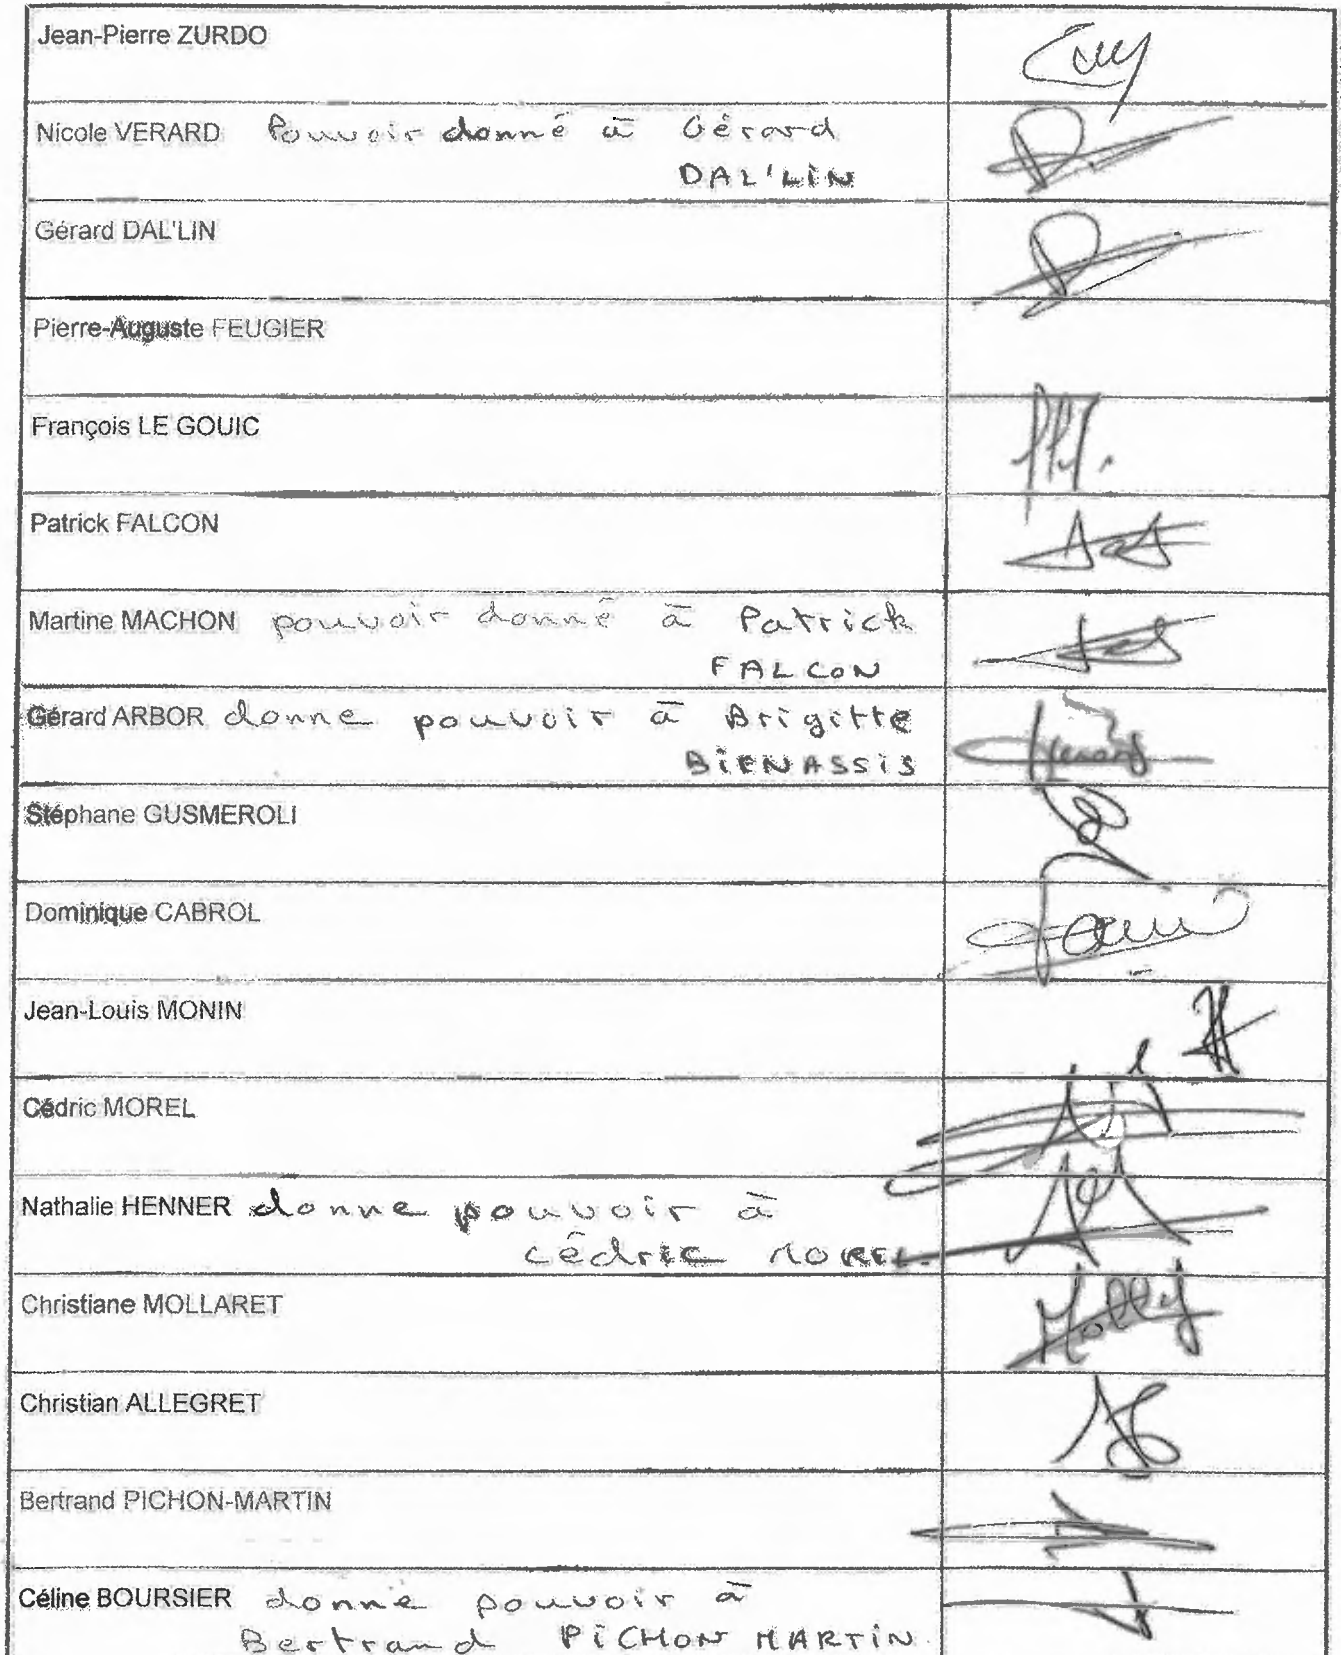 Jean-Pierre ZURDO
Nicole VERARD Pouvoir donné à Gérard
DAL'LIN
Gérard DAL'LIN
Pierre-Auguste FEUGIER
François LE GOUIC
Patrick FALCON
Martine MACHON pouvoir donné à Patrick
FALCON
Gérard ARBOR donne pouvoir à Brigitte
BIENASSIS
Stéphane GUSMEROLI
Dominique CABROL
Jean-Louis MONIN
Cédric MOREL
Nathalie HENNER donne pouvoir à
Cédric MOREL
Christiane MOLLARET
Christian ALLEGRET
Bertrand PICHON-MARTIN
Céline BOURSIER donne pouvoir à
Bertrand PICHON MARTIN